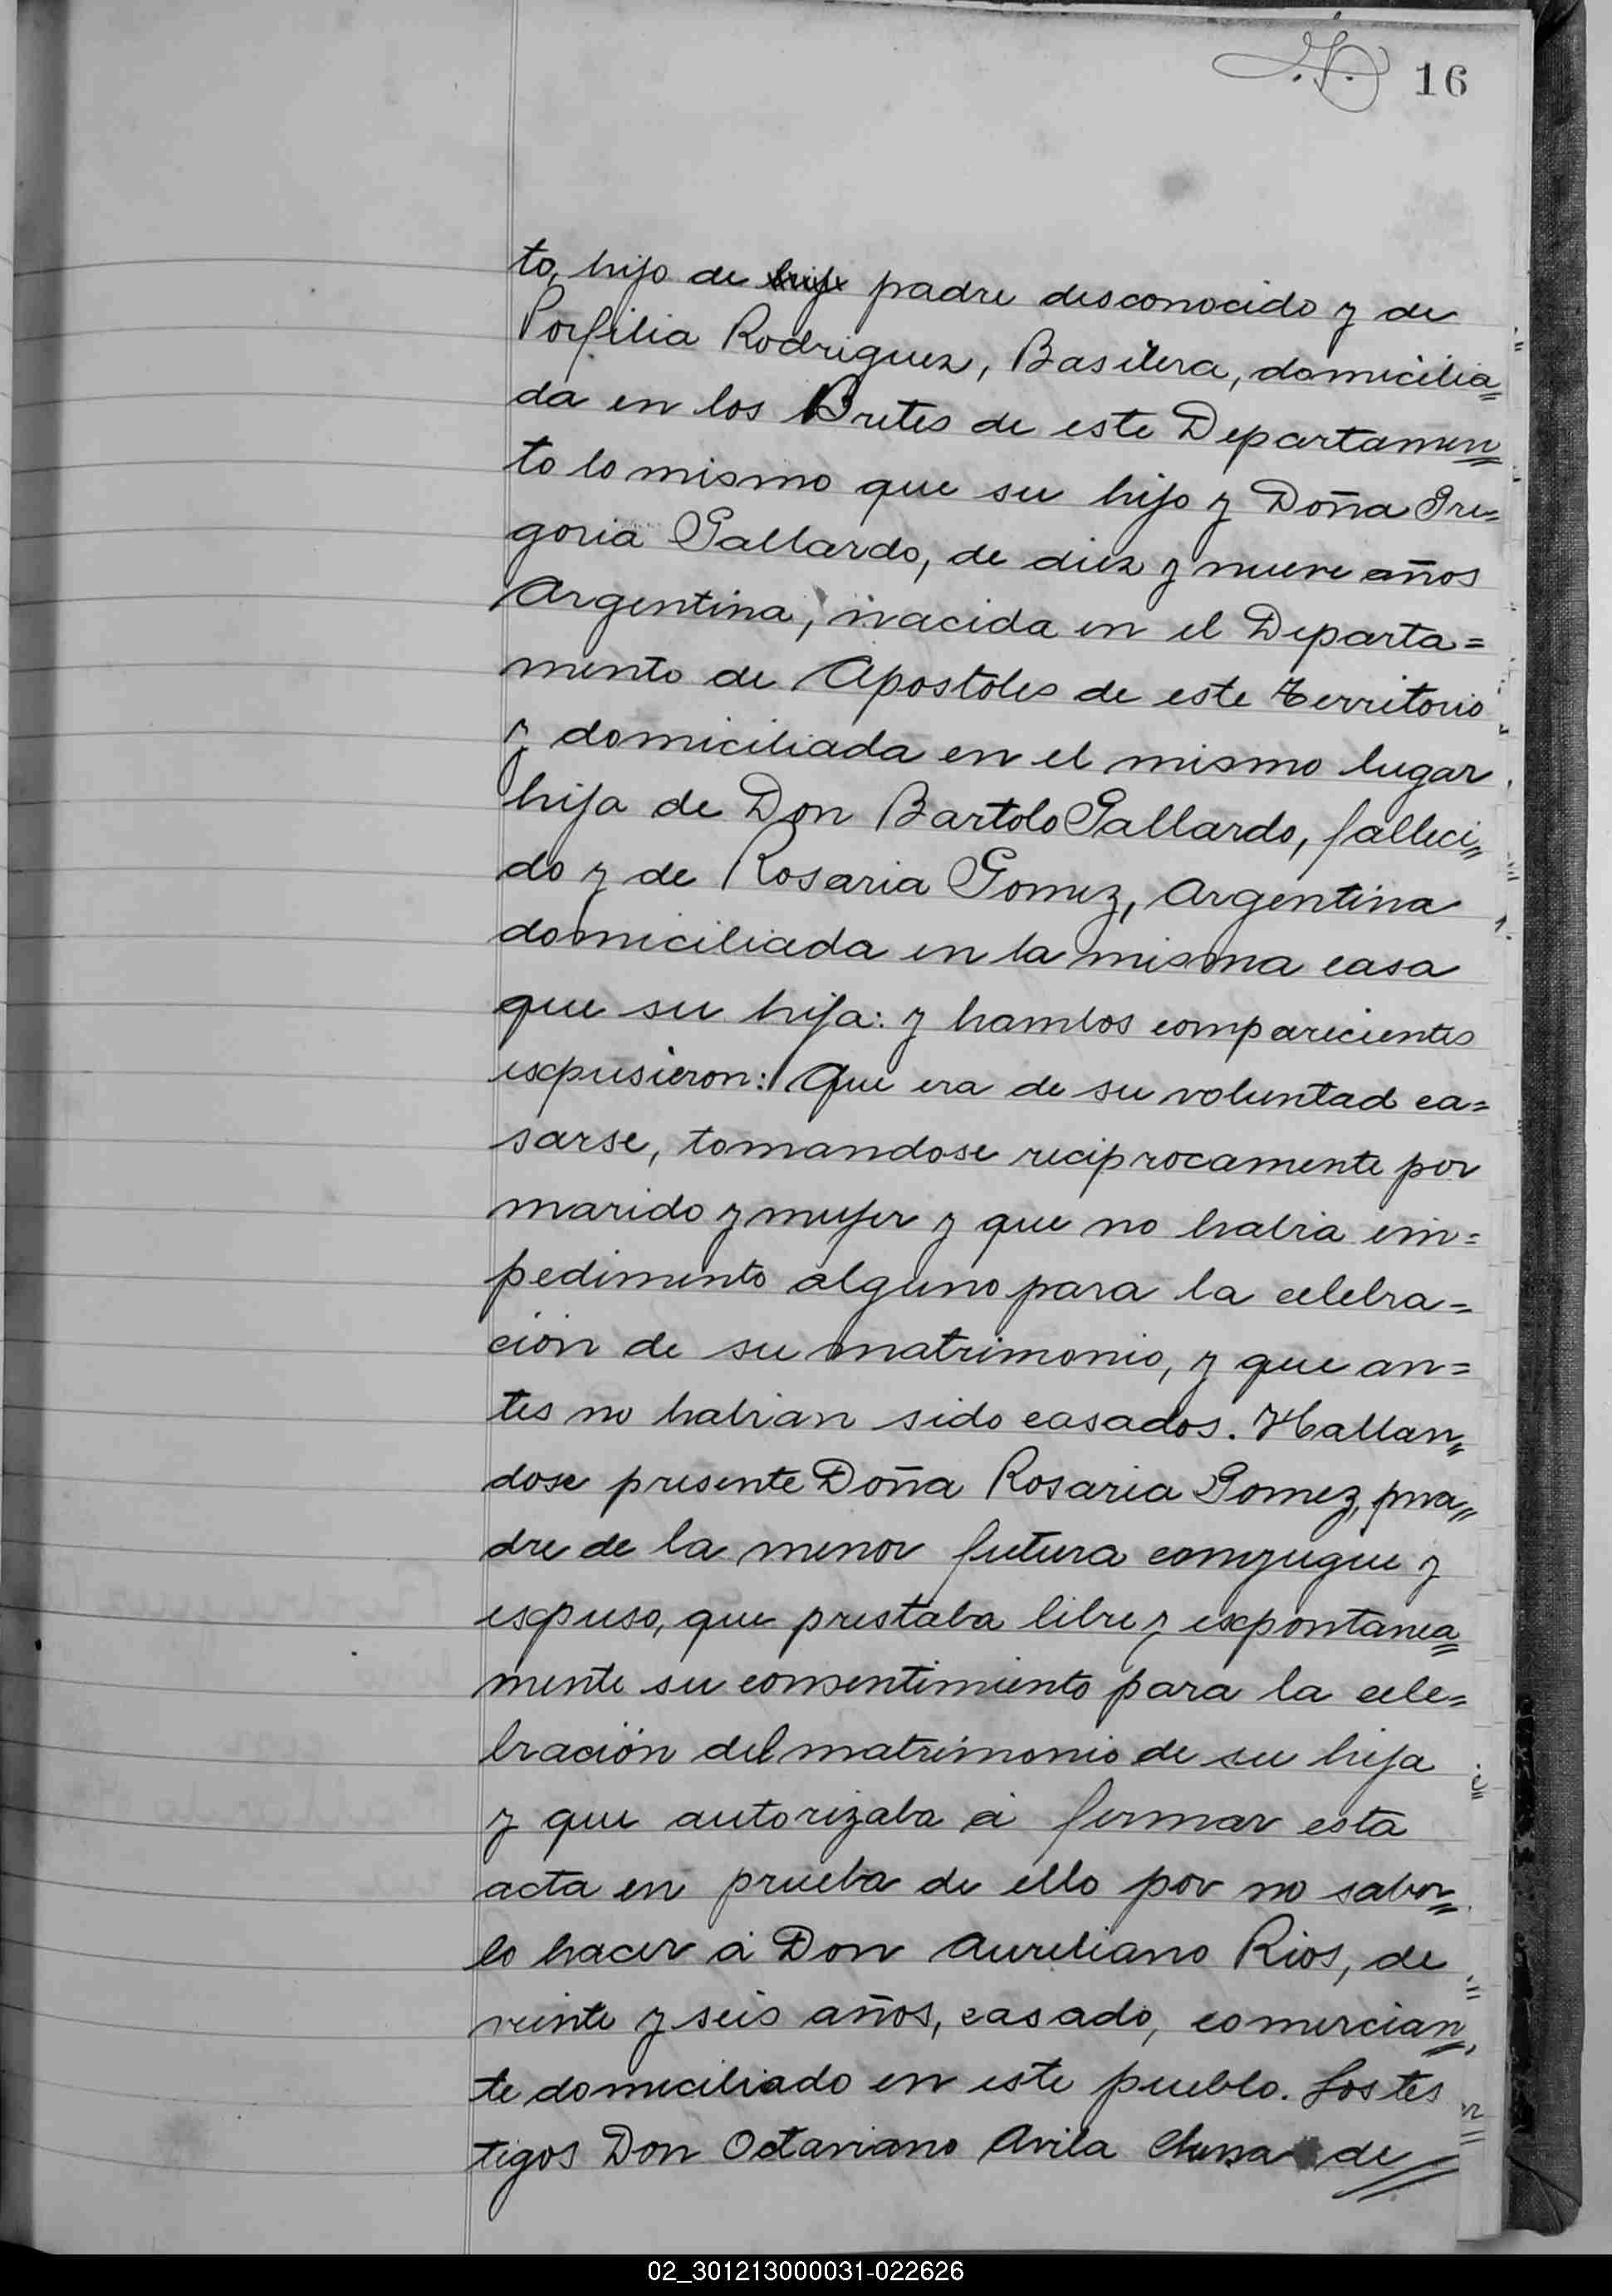 16
to, hijo de padre desconocido y de
Porfilia Rodriguez, Basilera, domicilia=
da en los Bretes de este Departamen=
to lo mismo que su hijo y Doña Gre=
goria Gallardo, de diez y nueve años
Argentina, nacida en el Departa=
mento de Apostoles de este territorio
y domiciliada en el mismo lugar
hija de Don Bartolo Gallardo, falleci=
do y de Rosaria Gomez, Argentina
domiciliada en la misma casa
que su hija: y hambos comparecientes
expusieron: Que era de su voluntad ca=
sarse, tomandose reciprocamente por
marido y mujer y que no habia im=
pedimento alguno para la celebra=
ción de su matrimonio, y que an=
tes no habian sido casados. Hallan=
dose presente Doña Rosaria Gomez, ma=
dre de la menor futura conyugue y
expuso, que prestaba libre y expontanea=
mente su consentimiento para la cele=
bración del matrimonio de su hija
y que autorizaba á firmar esta
acta en prueba de ello por no saber=
lo hacer á Don Aureliano Rios, de
veinte y seis años, casado, comercian=
te domiciliado en este pueblo. Los tes
tigos Don Octaviano Avila de
02_301213000031-022626